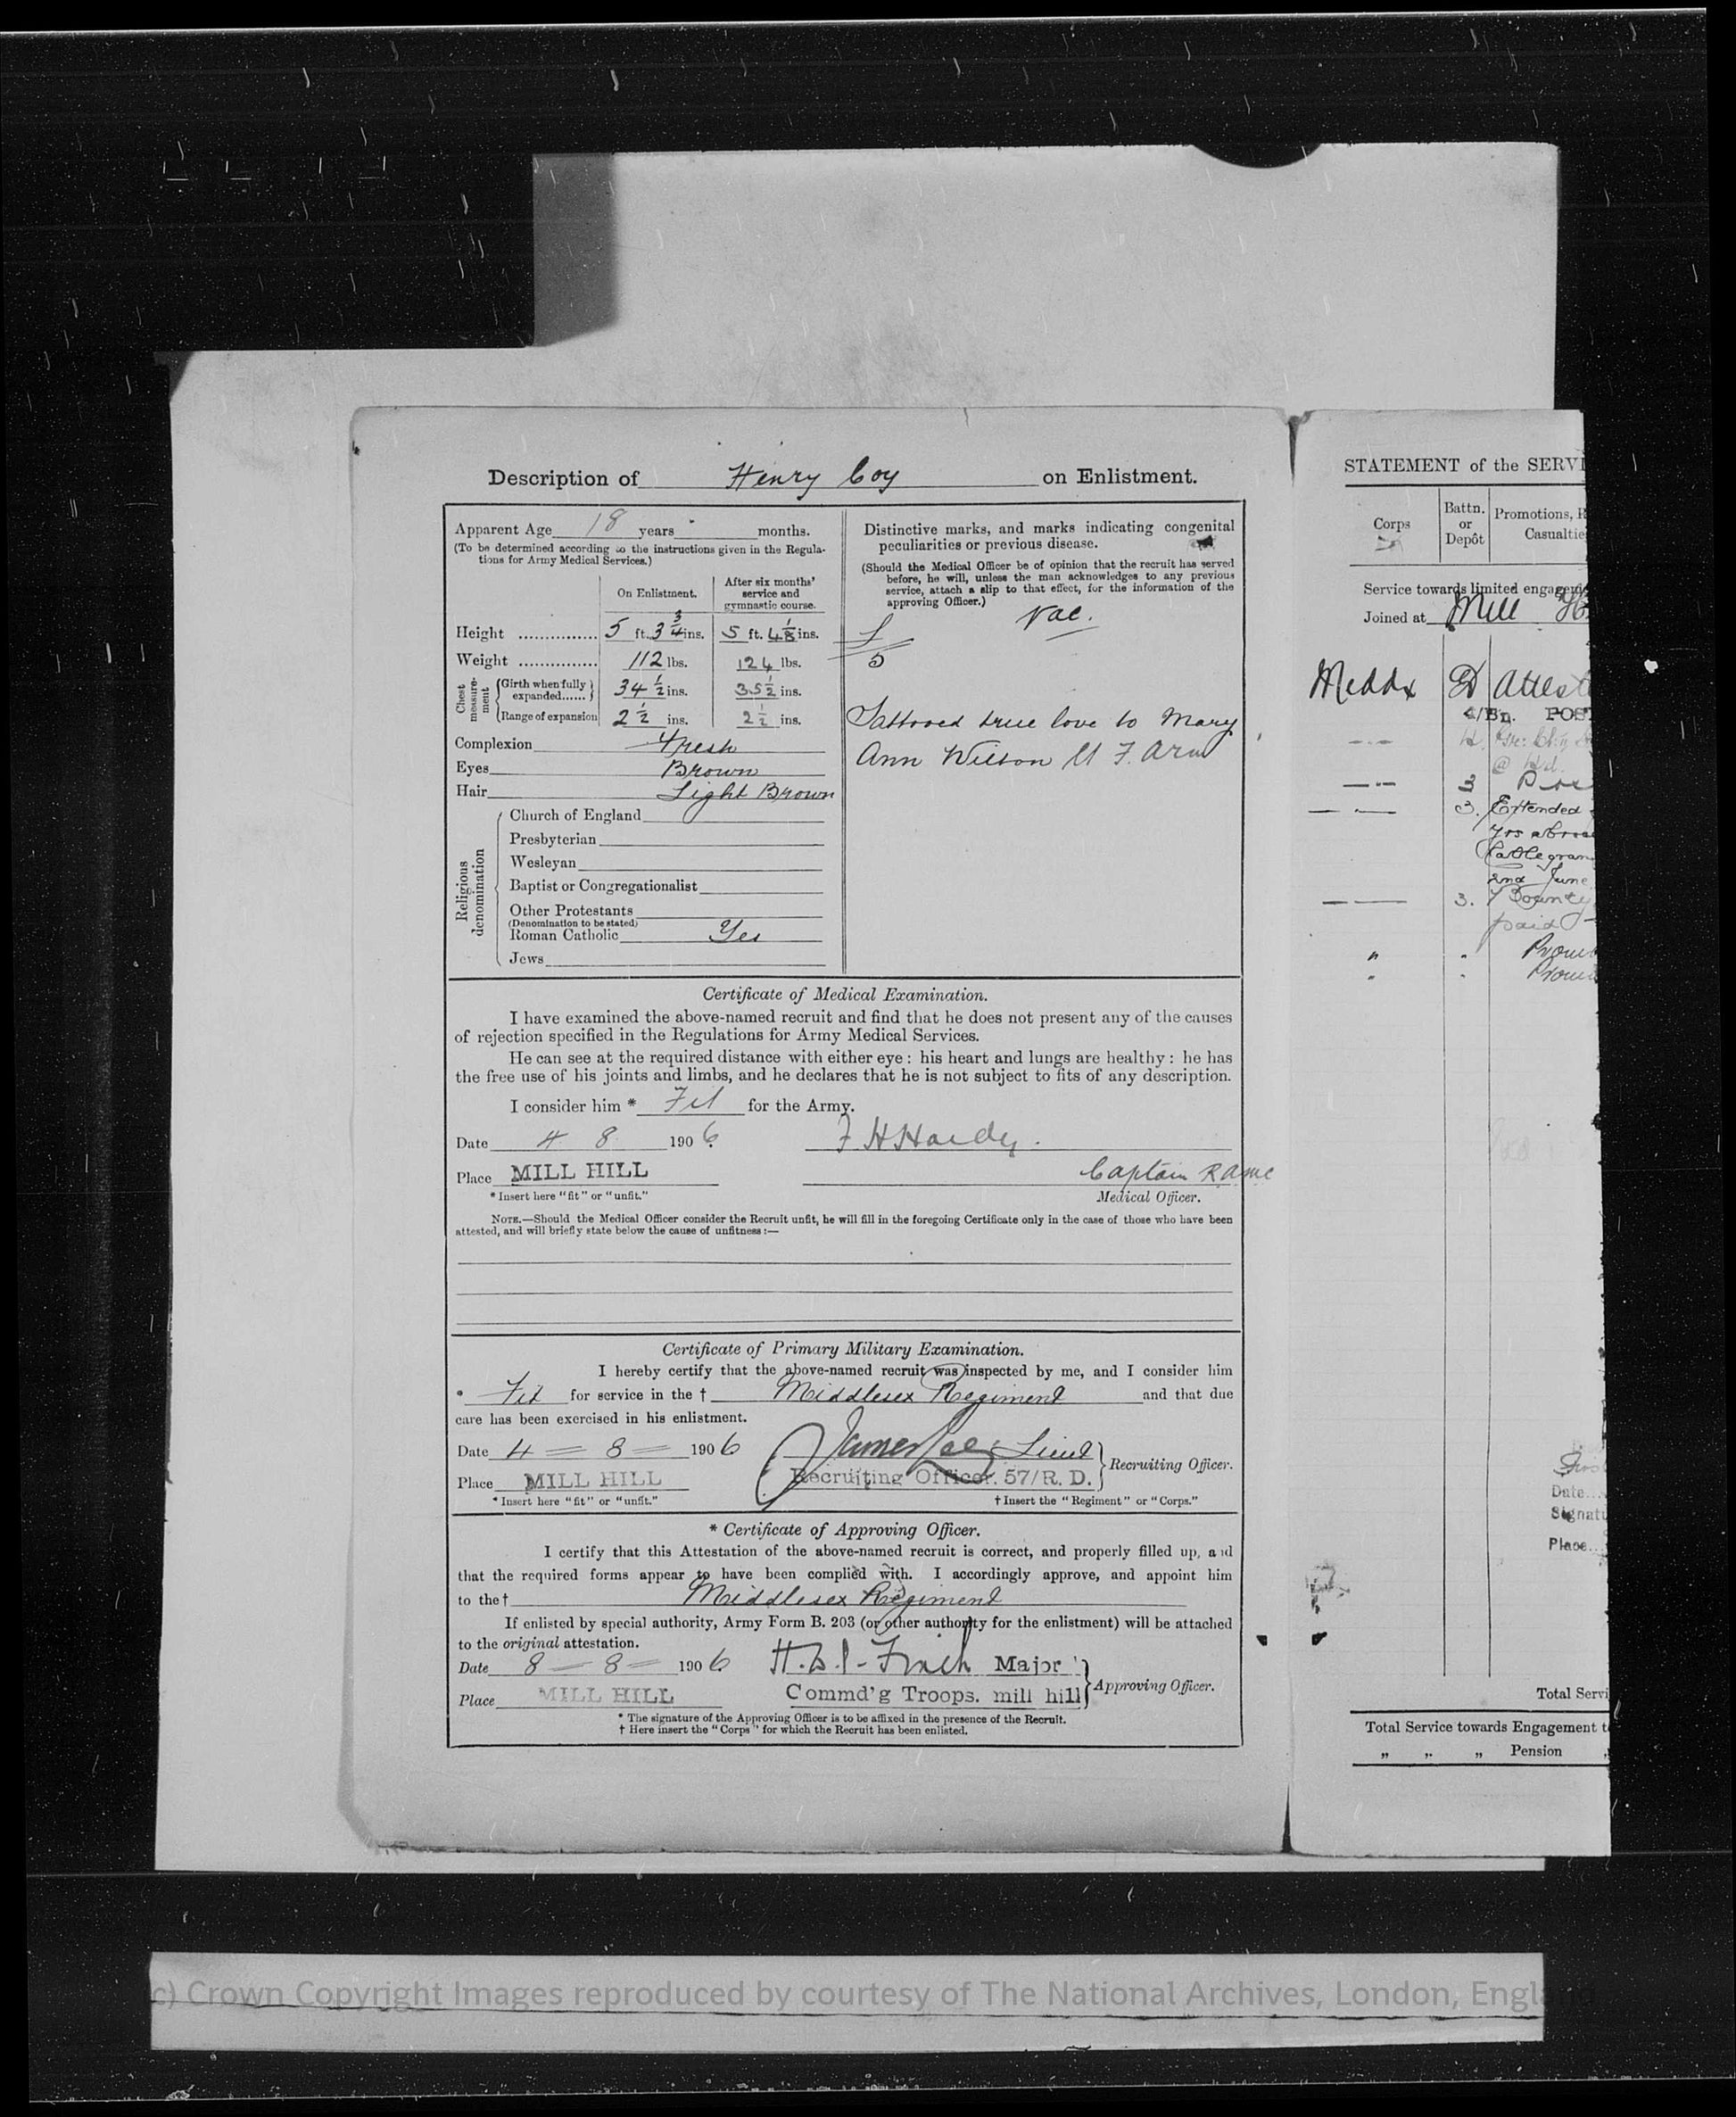 Description of Henry Coy on Enlistment.
Apparent Age 18 years months.
(To be determined according to the instructions given in the Regula-
tions for Army Medical Services.)
On Enlistment.
After six months'
service and
gymnastic course.
Height ............... 5 ft. 3 3/4 ins. 5 ft. 4 1/8 ins.
Weight ............... 112 lbs. 124 lbs.
Chest measure-ment
Girth when fully expanded...... 34 1/2 ins. 35 1/2 ins.
Range of expansion 2 1/2 ins. 2 1/2 ins.
Complexion Fresh
Eyes Brown
Hair Light Brown
Religious denomination
Church of England
Presbyterian
Wesleyan
Baptist or Congregationalist
Other Protestants
(Denomination to be stated)
Roman Catholic Yes
Jews
Distinctive marks, and marks indicating congenital
peculiarities or previous disease.
(Should the Medical Officer be of opinion that the recruit has served
before, he will, unless the man acknowledges to any previous
service, attach a slip to that effect, for the information of the
approving Officer.)
Vac.
5
Tattooed true love to Mary
Ann Wilson lt F. Arm
Certificate of Medical Examination.
I have examined the above-named recruit and find that he does not present any of the causes
of rejection specified in the Regulations for Army Medical Services.
He can see at the required distance with either eye: his heart and lungs are healthy: he has
the free use of his joints and limbs, and he declares that he is not subject to fits of any description.
I consider him * Fit for the Army.
Date 4 8 1906 F H Hardy.
Place MILL HILL Captain RAMC
* Insert here "fit" or "unfit." Medical Officer.
NOTE.—Should the Medical Officer consider the Recruit unfit, he will fill in the foregoing Certificate only in the case of those who have been
attested, and will briefly state below the cause of unfitness:—
Certificate of Primary Military Examination.
I hereby certify that the above-named recruit was inspected by me, and I consider him
* Fit for service in the † Middlesex Regiment and that due
care has been exercised in his enlistment.
Date 4 = 8 = 1906 James Lieut
Recruiting Officer.
Place MILL HILL Recruiting Officer. 57/R. D.
* Insert here "fit" or "unfit." † Insert the "Regiment" or "Corps."
* Certificate of Approving Officer.
I certify that this Attestation of the above-named recruit is correct, and properly filled up, and
that the required forms appear to have been complied with. I accordingly approve, and appoint him
to the † Middlesex Regiment
If enlisted by special authority, Army Form B. 203 (or other authority for the enlistment) will be attached
to the original attestation.
Date 8 — 8 — 1906 Finch Major
Approving Officer.
Place MILL HILL Commd'g Troops. mill hill
* The signature of the Approving Officer is to be affixed in the presence of the Recruit.
† Here insert the "Corps" for which the Recruit has been enlisted.
STATEMENT of the SERVI
Corps
Battn.
or
Depôt
Promotions, R
Casualtie
Service towards limited engageme
Joined at Mill H
Middx D Attest
4/Bn. POS
3
3. Extended
yrs abroa
Cablegram
2nd June
3. Bounty
paid
" " Promo
" " Promo
Date...
Signatu
Place...
Total Servi
Total Service towards Engagement t
" " " Pension
(c) Crown Copyright Images reproduced by courtesy of The National Archives, London, England